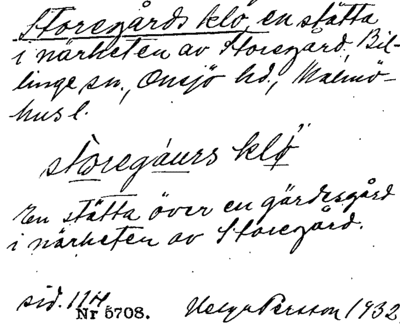 Storegårds klö, en stätta
i närheten av Storegård. Bil-
linge sn., Onsjö hd., Malmö-
hus l.
storegaurs klø̈
En stätta över en gärdesgård
i närheten av Storegård.
sid. 114
Nr 5708. Helge Persson 1932.